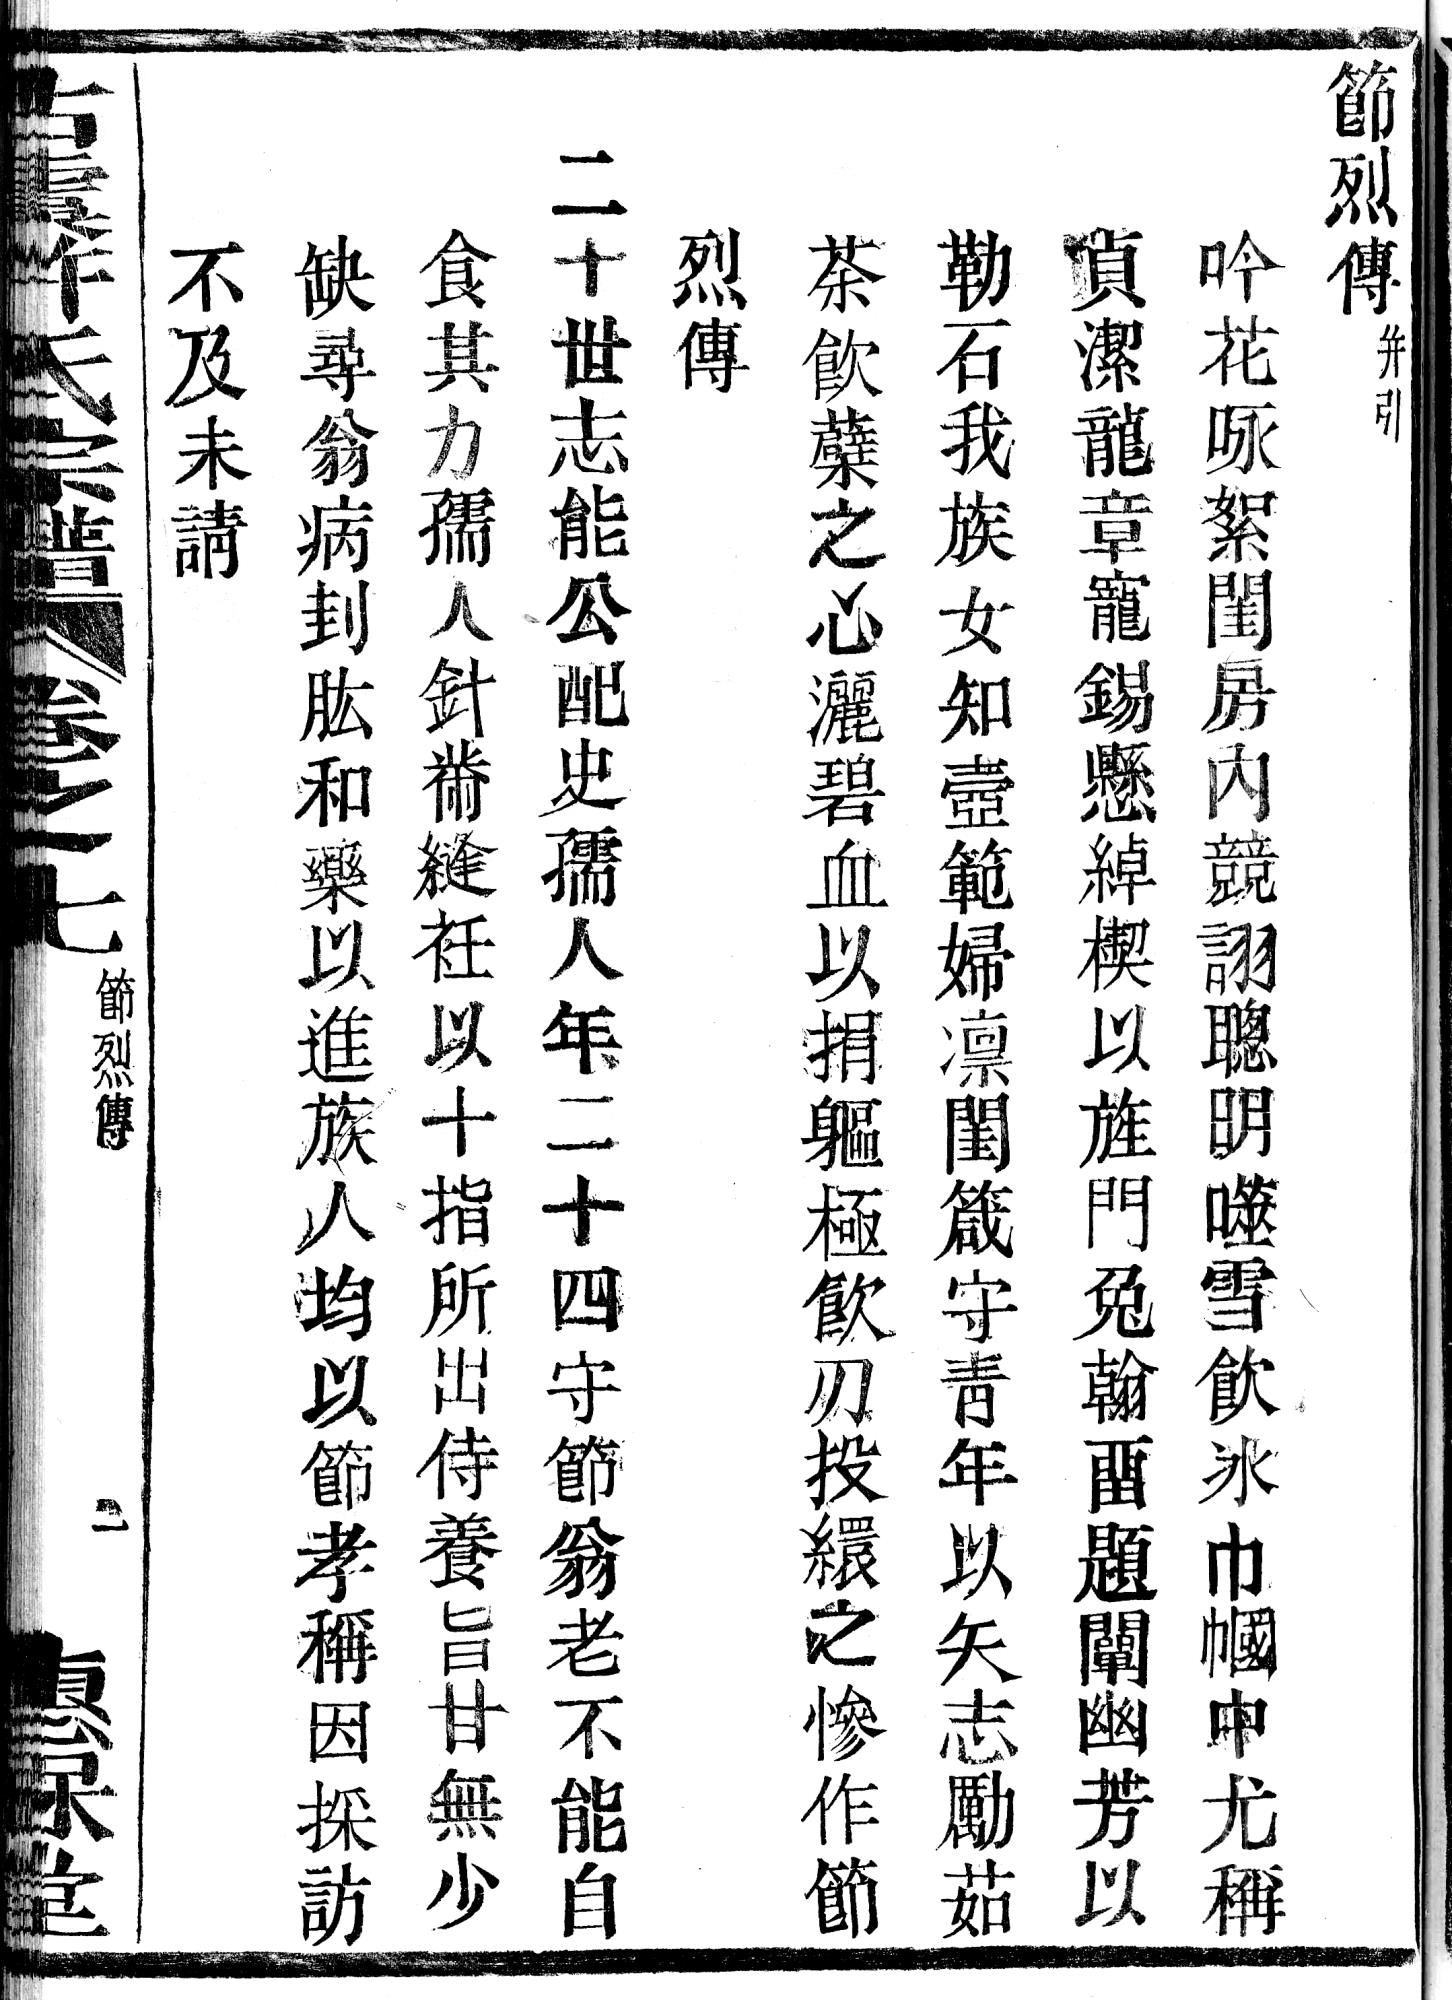 節烈傳 并引
吟花咏絮閨房內競詡聰明嚙雪飲冰巾幗中尤稱
貞潔龍章寵錫懸綽楔以旌門兔翰畱題闡幽芳以
勒石我族女知壼範婦凛閨箴守青年以矢志勵茹
荼飲蘗之心灑碧血以捐軀極飲刃投繯之慘作節
烈傳
二十世志能公配史孺人年二十四守節翁老不能自
食其力孺人針黹縫衽以十指所出侍養旨甘無少
缺尋翁病刲肱和藥以進族人均以節孝稱因採訪
不及未請
氏宗譜 卷之七 節烈傳 二